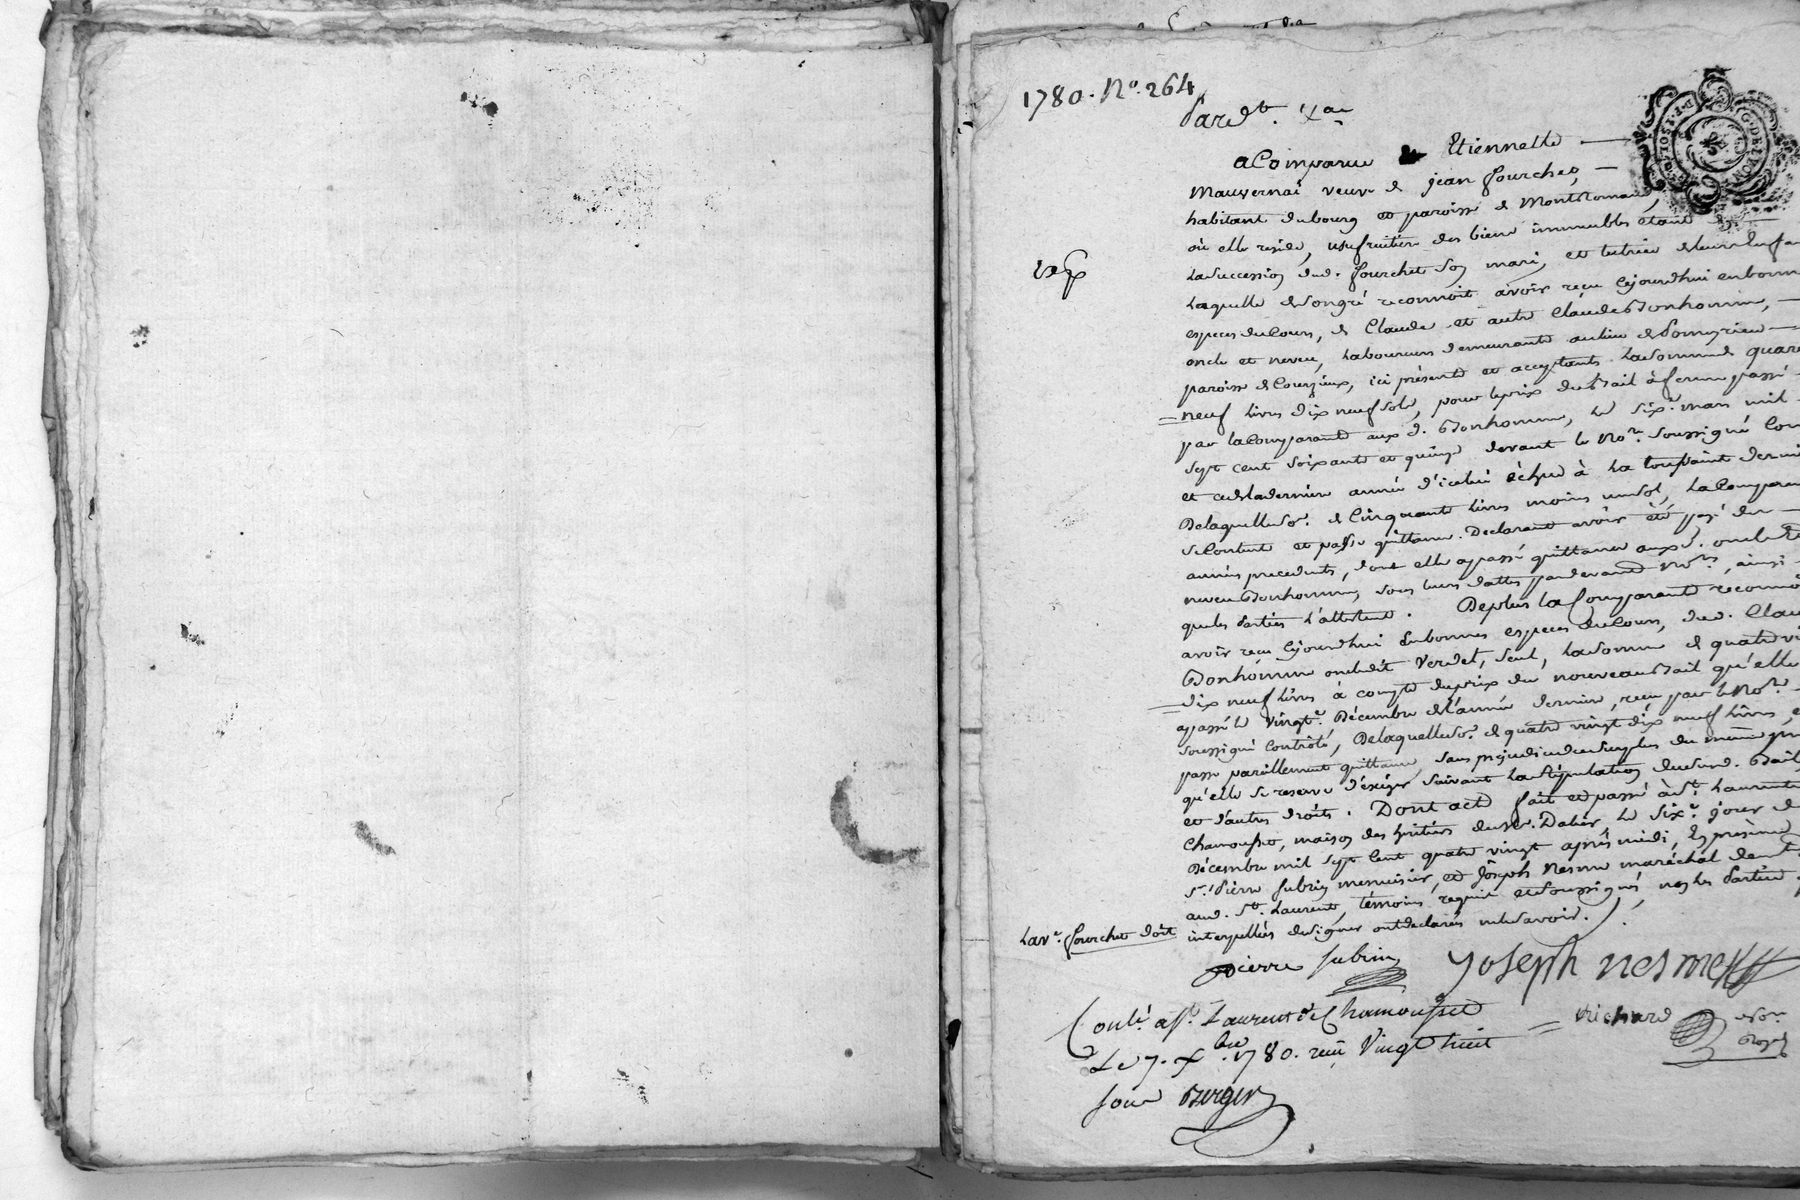 1780. No. 264
Pardt.
a Comparue Etiennette
Mauvernai veuve de jean fourchet,
habitant du bourg et paroisse de Montromand,
où elle reside, usufruitiere des biens immeubles étant de
la Succession dud. fourchet Son mari, et tutrice de leurs Enfa
Laquelle de Son gré reconnoit avoir reçu cejourdhui en bonne
especes du Cours, de Claude et autre Claude Bonhomme,
oncle et neveu, Laboureurs demeurants au lieu de
paroisse de Courzieux, ici présents et acceptants La Somme de quara
neuf Livres dix neuf Sols, pour le prix du Bail à ferme passé
par la Comparante aux d. Bonhomme, le Six. mars mil
Sept cent Soixante et quinze devant le Nore. Soussigné Con
et cedela derniere année d'icelui échue à La toussaint derni
De laquelle So. de Cinquante Livres moins un Sol, La Comparan
Se Contente et passe quittance. Declarant avoir été payé des
années precedentes, dont elle a passé quittance aux d. oncle et
neveu Bonhomme, Sous leurs dattes pardevant Nores, ainsi
que les Parties L'attestent. De plus la Comparante reconno
avoir reçu cejourdhui En bonnes especes du Cours, dud. Clau
Bonhomme oncle dit Verdet, Seul, La Somme de quatre vi
dix neuf Livres à compte du prix du nouveau Bail qu'elle
a passé le Vingte. Décembre de L'année derniere, reçu par le Nore.
Soussigné Contrôlé, De laquelle So. de quatre vingt dix neuf Livres, e
passe pareillement quittance, Sans préjudice du Surplus du même pri
qu'elle Se reserve d'exiger Suivant La Stipulation dud. Bail,
et d'autres droits. Dont acte fait et passé à St. Laurent
Chamousset, maison des héritiers du Sr. Dalier le Six.e jour de
Décembre mil Sept Cent quatre vingt après midi, En présence
Sr. Pierre Subrin menuisier, et Joseph Nesme maréchal demt.
aud. St. Laurent, témoins requis et Soussignés, non les Parties
interpellées de Signer ont declarés ne le Savoir.
La ve. fourchet doit
pierre subrin Joseph nesme
Conlé a St. Laurent de Chamousset
Le 7. Xbre 1780. reçu Vingt huit
Sous Berger
Richard
Nore
Royal